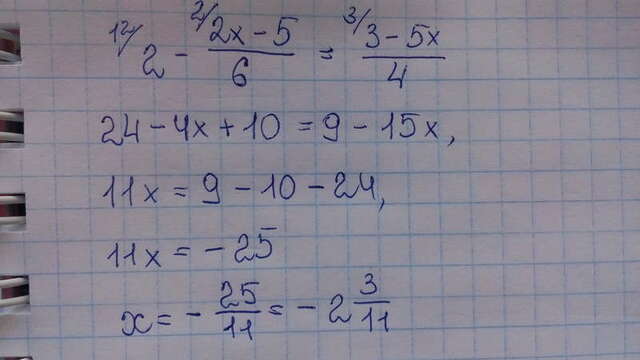 12/ 2 - 2/ (2x - 5)/6 = 3/ (3 - 5x)/4
24 - 4x + 10 = 9 - 15x,
11x = 9 - 10 - 24,
11x = - 25
x = - 25/11 = - 2 3/11